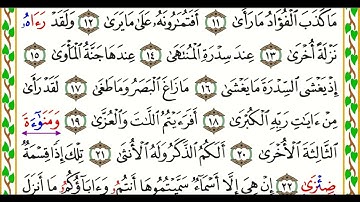 مَا كَذَبَ الْفُؤَادُ مَا رَأَىٰ ١١ أَفَتُمَارُونَهُ عَلَىٰ مَا يَرَىٰ ١٢ وَلَقَدْ رَءَاهُ
نَزْلَةً أُخْرَىٰ ١٣ عِندَ سِدْرَةِ الْمُنتَهَىٰ ١٤ عِندَهَا جَنَّةُ الْمَأْوَىٰ ١٥
إِذْ يَغْشَى السِّدْرَةَ مَا يَغْشَىٰ ١٦ مَا زَاغَ الْبَصَرُ وَمَا طَغَىٰ ١٧ لَقَدْ رَأَىٰ
مِنْ ءَايَٰتِ رَبِّهِ الْكُبْرَىٰ ١٨ أَفَرَءَيْتُمُ اللَّٰتَ وَالْعُزَّىٰ ١٩ وَمَنَوٰةَ
الثَّالِثَةَ الْأُخْرَىٰ ٢٠ أَلَكُمُ الذَّكَرُ وَلَهُ الْأُنثَىٰ ٢١ تِلْكَ إِذًا قِسْمَةٌ
ضِيزَىٰ ٢٢ إِنْ هِيَ إِلَّا أَسْمَاءٌ سَمَّيْتُمُوهَا أَنتُمْ وَءَابَاؤُكُم مَّا أَنزَلَ